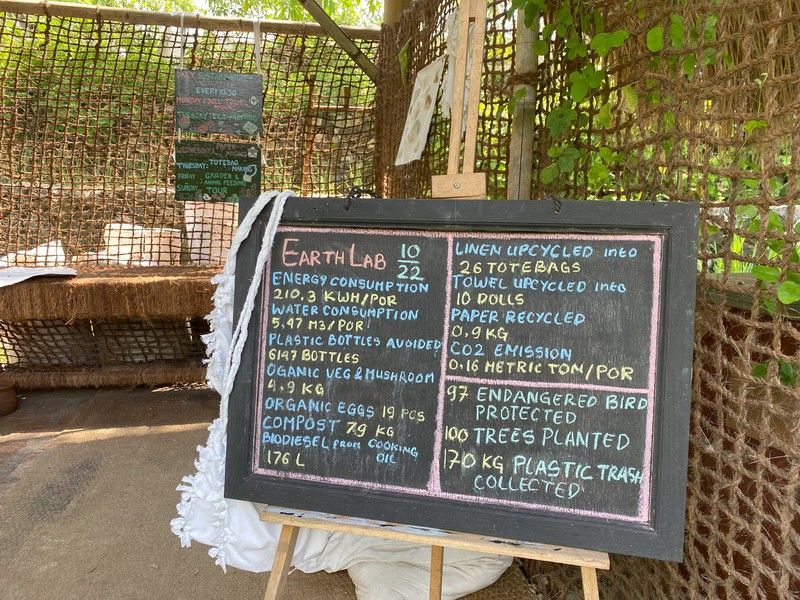 EVERY 10.30
MONDAY: DOLL TOWEL
TUESDAY:
THURSDAY: TOTEBAG
MAKING
FRIDAY: GARDEN &
ANIMAL FEEDING
SUNDAY TOUR
EARTH LAB 10/22
ENERGY CONSUMPTION
210.3 KWH/POR
WATER CONSUMPTION
5.47 M3/POR
PLASTIC BOTTLES AVOIDED
6147 BOTTLES
OGANIC VEG & MUSHROOM
4.9 KG
ORGANIC EGGS 19 PCS
COMPOST 79 KG
BIODIESEL FROM COOKING
OIL
176 L
LINEN UPCYCLED INTO
26 TOTEBAGS
TOWEL UPCYCLED INTO
10 DOLLS
PAPER RECYCLED
0.9 KG
CO2 EMISSION
0.16 METRIC TON/POR
97 ENDANGERED BIRD
PROTECTED
100 TREES PLANTED
170 KG PLASTIC TRASH
COLLECTED